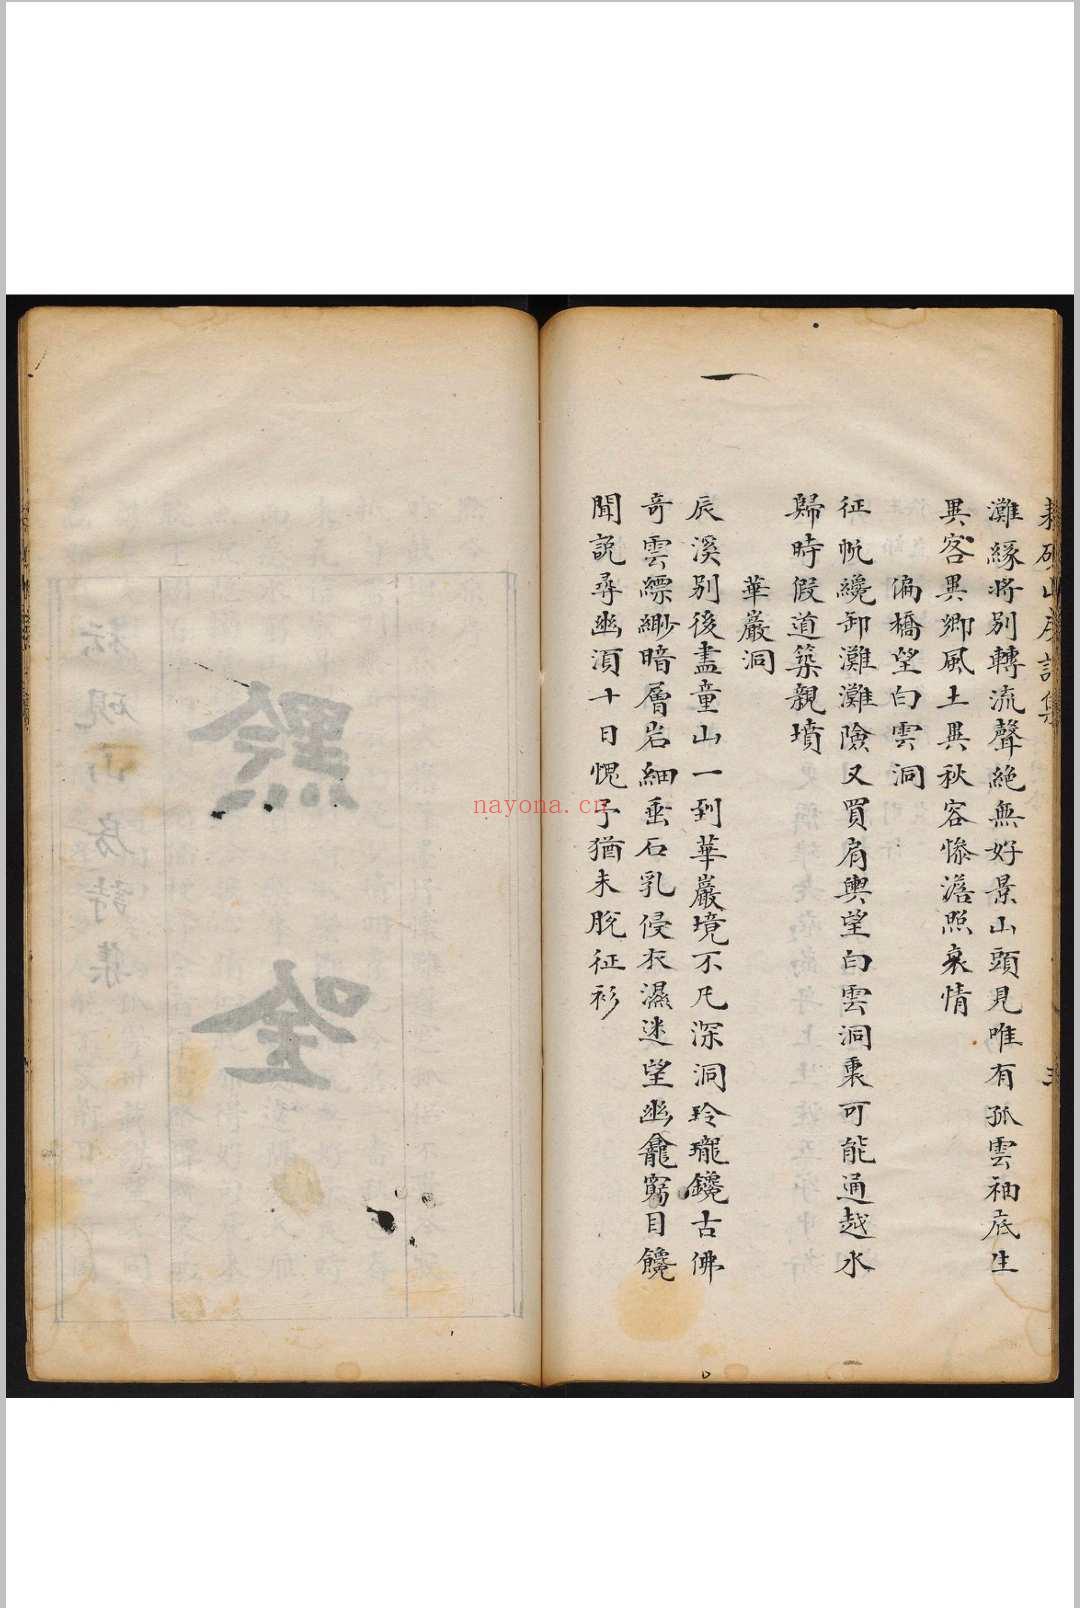 耘硯山房詩集
灘緣將別轉流聲絶無好景山頭見唯有孤雲袖底生
異客異鄉風土異秋容慘澹照衷情
偏橋望白雲洞
征帆纔卸灘灘險又買肩輿望白雲洞裏可能通越水
歸時假道築親墳
華嚴洞
辰溪別後盡童山一到華巖境不凡深洞玲瓏鑱古佛
奇雲縹緲暗層岩細垂石乳侵衣濕迷望幽龕窮目饞
聞說尋幽須十日愧予猶未脫征衫
nayona.cn
黔
吟
耘硯山房詩集